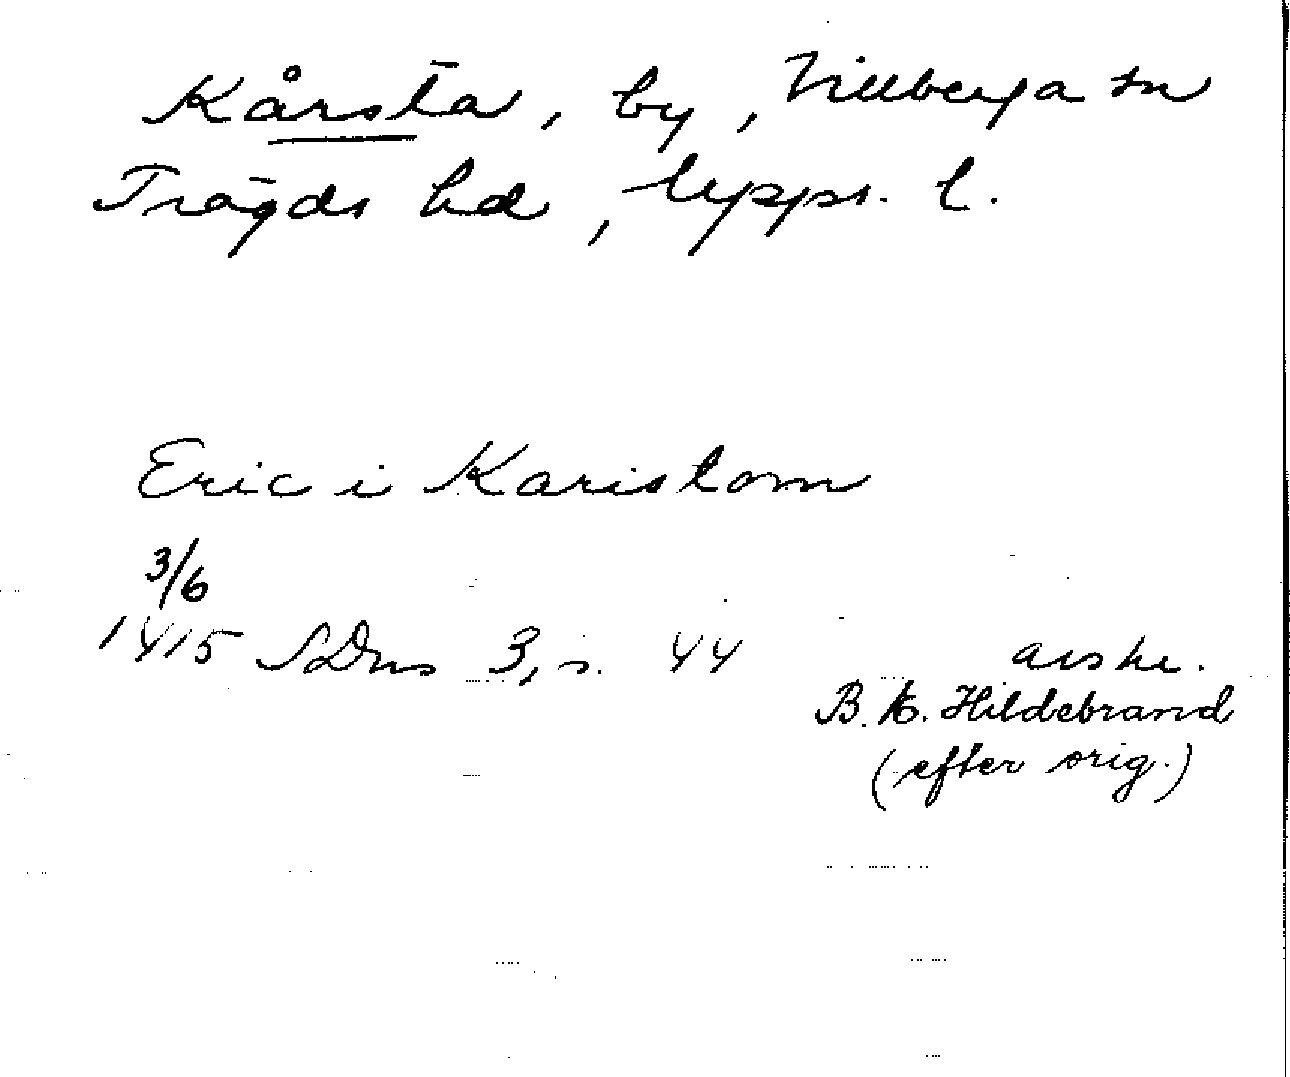 Kårsta, by, Villberga sn
Trögds hd, Upps. l.
Eric i Karistom
3/6
1415 SDns 3, s. 44 avskr.
B. E. Hildebrand
(efter orig.)